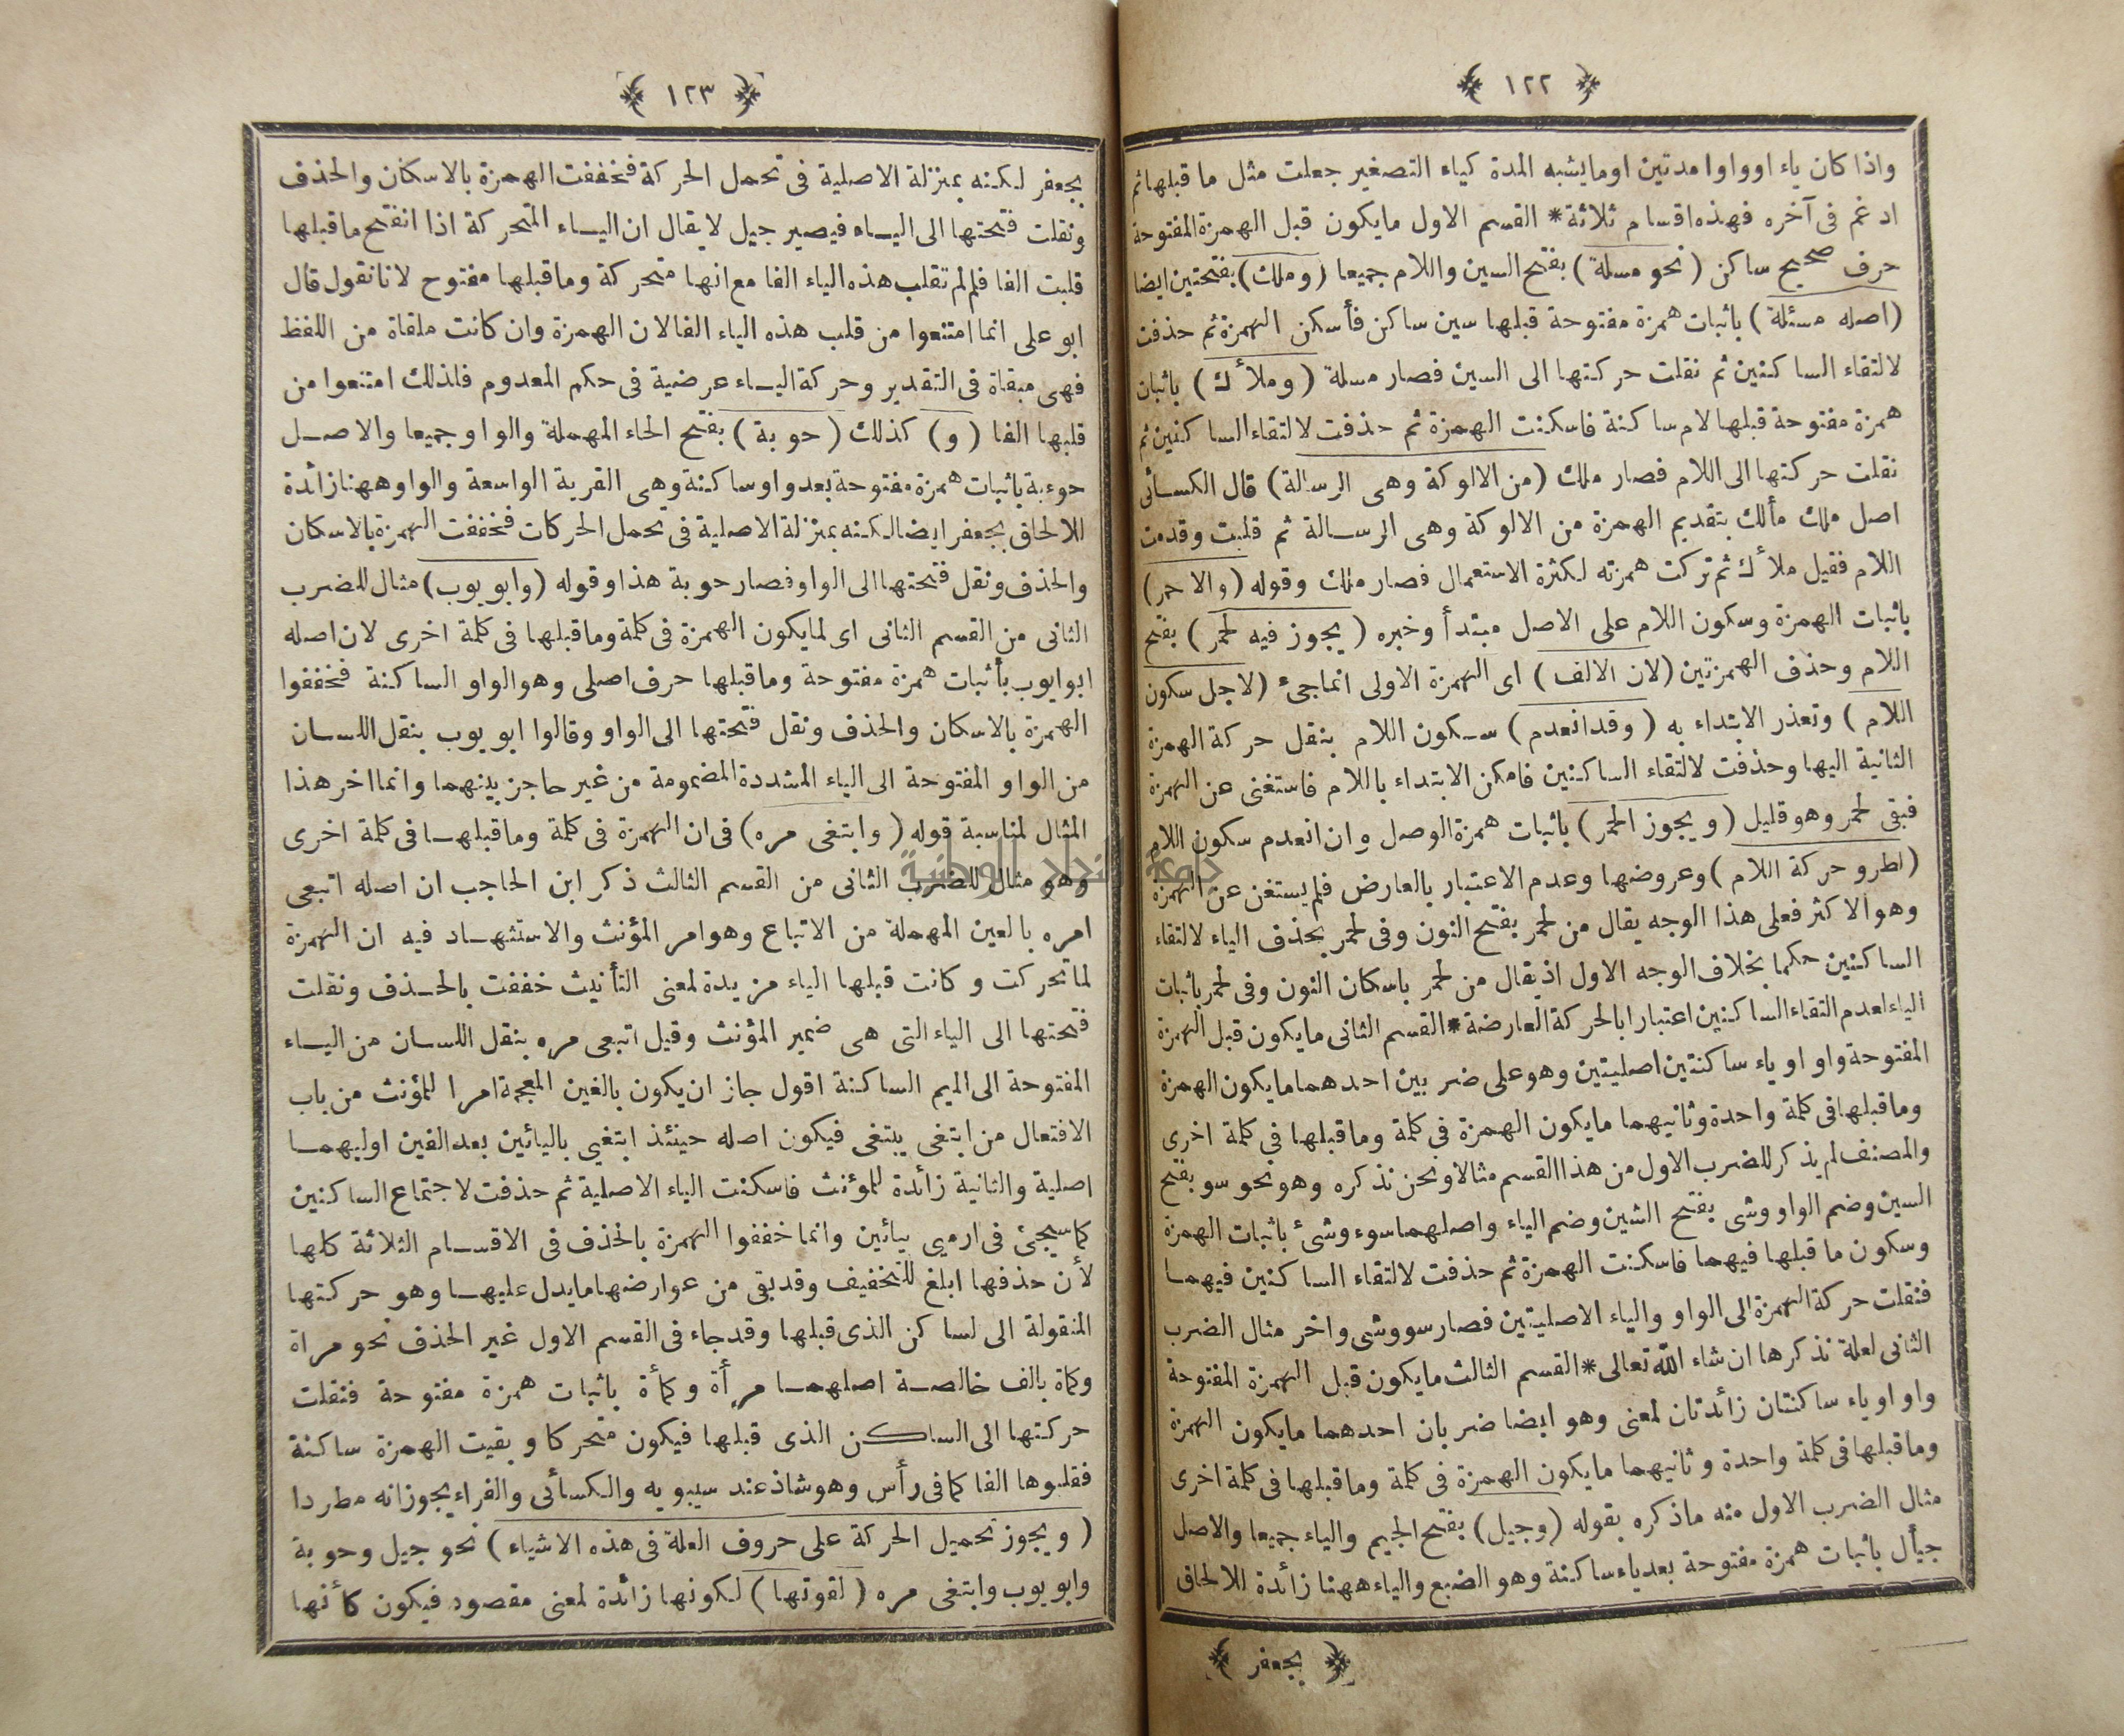 ﴿ ١٢٢ ﴾
واذا كان ياء اوواوا مدتين اومايشبه المدة كياء التصغير جعلت مثل ما قبلها ثم
ادغم فى آخره فهذه اقسام ثلاثة * القسم الاول مايكون قبل الهمزة المفتوحة
حرف صحيح ساكن (نحو مسلة) بفتح السين واللام جميعا (وملك) بفتحتين ايضا
(اصله مسئلة) باثبات همزة مفتوحة قبلها سين ساكن فأسكن الهمزة ثم حذفت
لالتقاء الساكنين ثم نقلت حركتها الى السين فصار مسلة (وملأك) باثبات
همزة مفتوحة قبلها لام ساكنة فاسكنت الهمزة ثم حذفت لالتقاء الساكنين ثم
نقلت حركتها الى اللام فصار ملك (من الالوكة وهى الرسالة) قال الكسائى
اصل ملك مألك بتقديم الهمزة من الالوكة وهى الرسالة ثم قلبت وقدمت
اللام فقيل ملأك ثم تركت همزته لكثرة الاستعمال فصار ملك وقوله (والاحمر)
باثبات الهمزة وسكون اللام على الاصل مبتدأ وخبره (يجوز فيه لحمر) بفتح
اللام وحذف الهمزتين (لان الالف) اى الهمزة الاولى انماجىء (لاجل سكون
اللام) وتعذر الابتداء به (وقد انعدم) سكون اللام بنقل حركة الهمزة
الثانية اليها وحذفت لالتقاء الساكنين فامكن الابتداء باللام فاستغنى عن الهمزة
فبقى لحمر وهو قليل (ويجوز الحمر) باثبات همزة الوصل وان انعدم سكون اللام
(لطرو حركة اللام) وعروضها وعدم الاعتبار بالعارض فلم يستغن عن الهمزة
وهو الاكثر فعلى هذا الوجه يقال من لحمر بفتح النون وفى لحمر بحذف الياء لالتقاء
الساكنين حكما بخلاف الوجه الاول اذ يقال من لحمر باسكان النون وفى لحمر باثبات
الياء لعدم التقاء الساكنين اعتبارا بالحركة العارضة * القسم الثانى مايكون قبل الهمزة
المفتوحة واو او ياء ساكنتين اصليتين وهو على ضربين احدهما مايكون الهمزة
وماقبلها فى كلمة واحدة وثانيهما مايكون الهمزة فى كلمة وماقبلها فى كلمة اخرى
والمصنف لم يذكر للضرب الاول من هذا القسم مثالا ونحن نذكره وهو نحو سو بفتح
السين وضم الواو وشى بفتح الشين وضم الياء واصلهما سوء وشىء باثبات الهمزة
وسكون ما قبلها فيهما فاسكنت الهمزة ثم حذفت لالتقاء الساكنين فيهما
فنقلت حركة الهمزة الى الواو والياء الاصليتين فصار سو وشى واخر مثال الضرب
الثانى لعلة نذكرها ان شاء الله تعالى * القسم الثالث مايكون قبل الهمزة المفتوحة
واو او ياء ساكنتان زائدتان لمعنى وهو ايضا ضربان احدهما مايكون الهمزة
وماقبلها فى كلمة واحدة وثانيهما مايكون الهمزة فى كلمة وماقبلها فى كلمة اخرى
مثال الضرب الاول منه ماذكره بقوله (وجيل) بفتح الجيم والياء جميعا والاصل
جيأل باثبات همزة مفتوحة بعد ياء ساكنة وهو الضبع والياء ههنا زائدة للالحاق
﴿ بجعفر ﴾
﴿ ١٢٣ ﴾
بجعفر لكنه بمنزلة الاصلية فى تحمل الحركة فخففت الهمزة بالاسكان والحذف
ونقلت فتحتها الى الياء فيصير جيل لايقال ان الياء المتحركة اذا انفتح ماقبلها
قلبت الفا فلم لم تقلب هذه الياء الفا مع انها متحركة وماقبلها مفتوح لانانقول قال
ابو على انما امتنعوا من قلب هذه الياء الفا لان الهمزة وان كانت ملقاة من اللفظ
فهى مبقاة فى التقدير وحركة الياء عرضية فى حكم المعدوم فلذلك امتنعوا من
قلبها الفا (و) كذلك (حوبة) بفتح الحاء المهملة والواو جميعا والاصل
حوءبة باثبات همزة مفتوحة بعد واو ساكنة وهى القربة الواسعة والواو ههنا زائدة
للالحاق بجعفر ايضا لكنه بمنزلة الاصلية فى تحمل الحركات فخففت الهمزة بالاسكان
والحذف ونقل فتحتها الى الواو فصار حوبة هذا وقوله (وابويوب) مثال للضرب
الثانى من القسم الثانى اى لمايكون الهمزة فى كلمة وماقبلها فى كلمة اخرى لان اصله
ابو ايوب بأثبات همزة مفتوحة وماقبلها حرف اصلى وهو الواو الساكنة فخففوا
الهمزة بالاسكان والحذف ونقل فتحتها الى الواو وقالوا ابو يوب بنقل اللسان
من الواو المفتوحة الى الياء المشددة المضمومة من غير حاجز بينهما وانما اخر هذا
المثال لمناسبة قوله (وابتغى مره) فى ان الهمزة فى كلمة وماقبلها فى كلمة اخرى
وهو مثال للضرب الثانى من القسم الثالث ذكر ابن الحاجب ان اصله اتبعى
امره بالعين المهملة من الاتباع وهو امر المؤنث والاستشهاد فيه ان الهمزة
لما تحركت وكانت قبلها الياء مزيدة لمعنى التأنيث خففت بالحذف ونقلت
فتحتها الى الياء التى هى ضمير المؤنث وقيل اتبعى مره بنقل اللسان من الياء
المفتوحة الى الميم الساكنة اقول جاز ان يكون بالغين المعجمة امرا للمؤنث من باب
الافتعال من ابتغى يبتغى فيكون اصله حينئذ ابتغيى باليائين بعد الغين اوليهما
اصلية والثانية زائدة للمؤنث فاسكنت الياء الاصلية ثم حذفت لاجتماع الساكنين
كما سيجئ فى ارميى بيائين وانما خففوا الهمزة بالحذف فى الاقسام الثلاثة كلها
لأن حذفها ابلغ للتخفيف وقد بقى من عوارضها مايدل عليها وهو حركتها
المنقولة الى لساكن الذى قبلها وقد جاء فى القسم الاول غير الحذف نحو مراة
وكماة بالف خالصة اصلهما مرأة وكمأة باثبات همزة مفتوحة فنقلت
حركتها الى الساكن الذى قبلها فيكون متحركا وبقيت الهمزة ساكنة
فقلبوها الفا كما فى رأس وهو شاذ عند سيبويه والكسائى والفراء يجوزانه مطردا
(ويجوز تحميل الحركة على حروف العلة فى هذه الاشياء) نحو جيل وحوبة
وابو يوب وابتغى مره (لقوتها) لكونها زائدة لمعنى مقصود فيكون كأنها